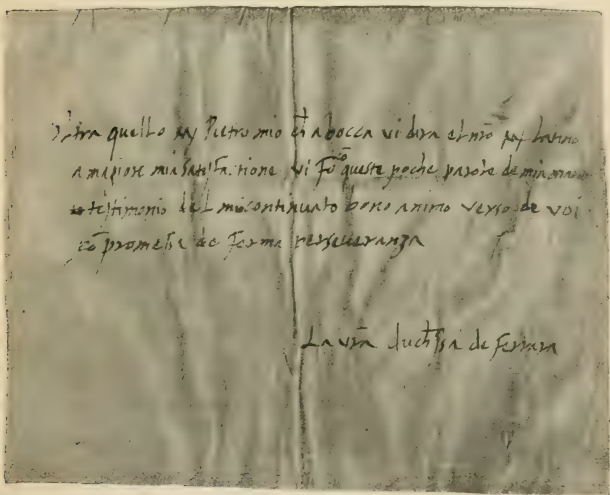 Oltra quello Pietro mio ch̄ a bocca vi dira el mō latino
a magiore mia satisfactione vi fō queste poche parole de mia mano
testimonio del mio continuato bono animo verso de voi
cō promessa de ferma perseveranza
La vrā duchessa de ferrara